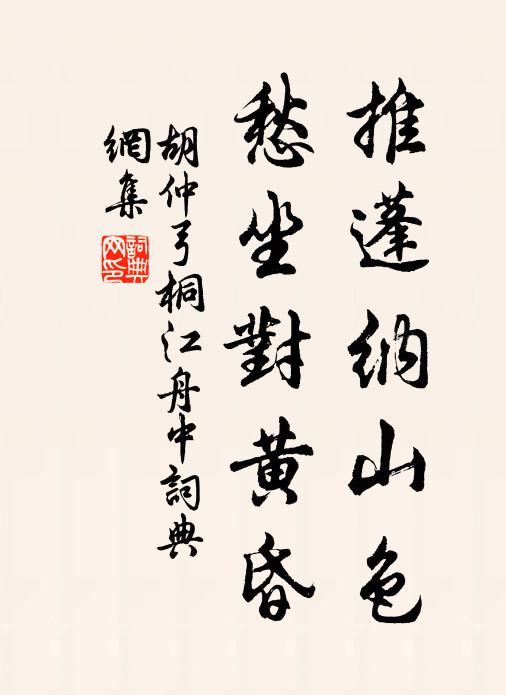 推蓬納山色
愁坐對黄昏
胡仲弓桐江舟中詞典
網集
詞典
网印